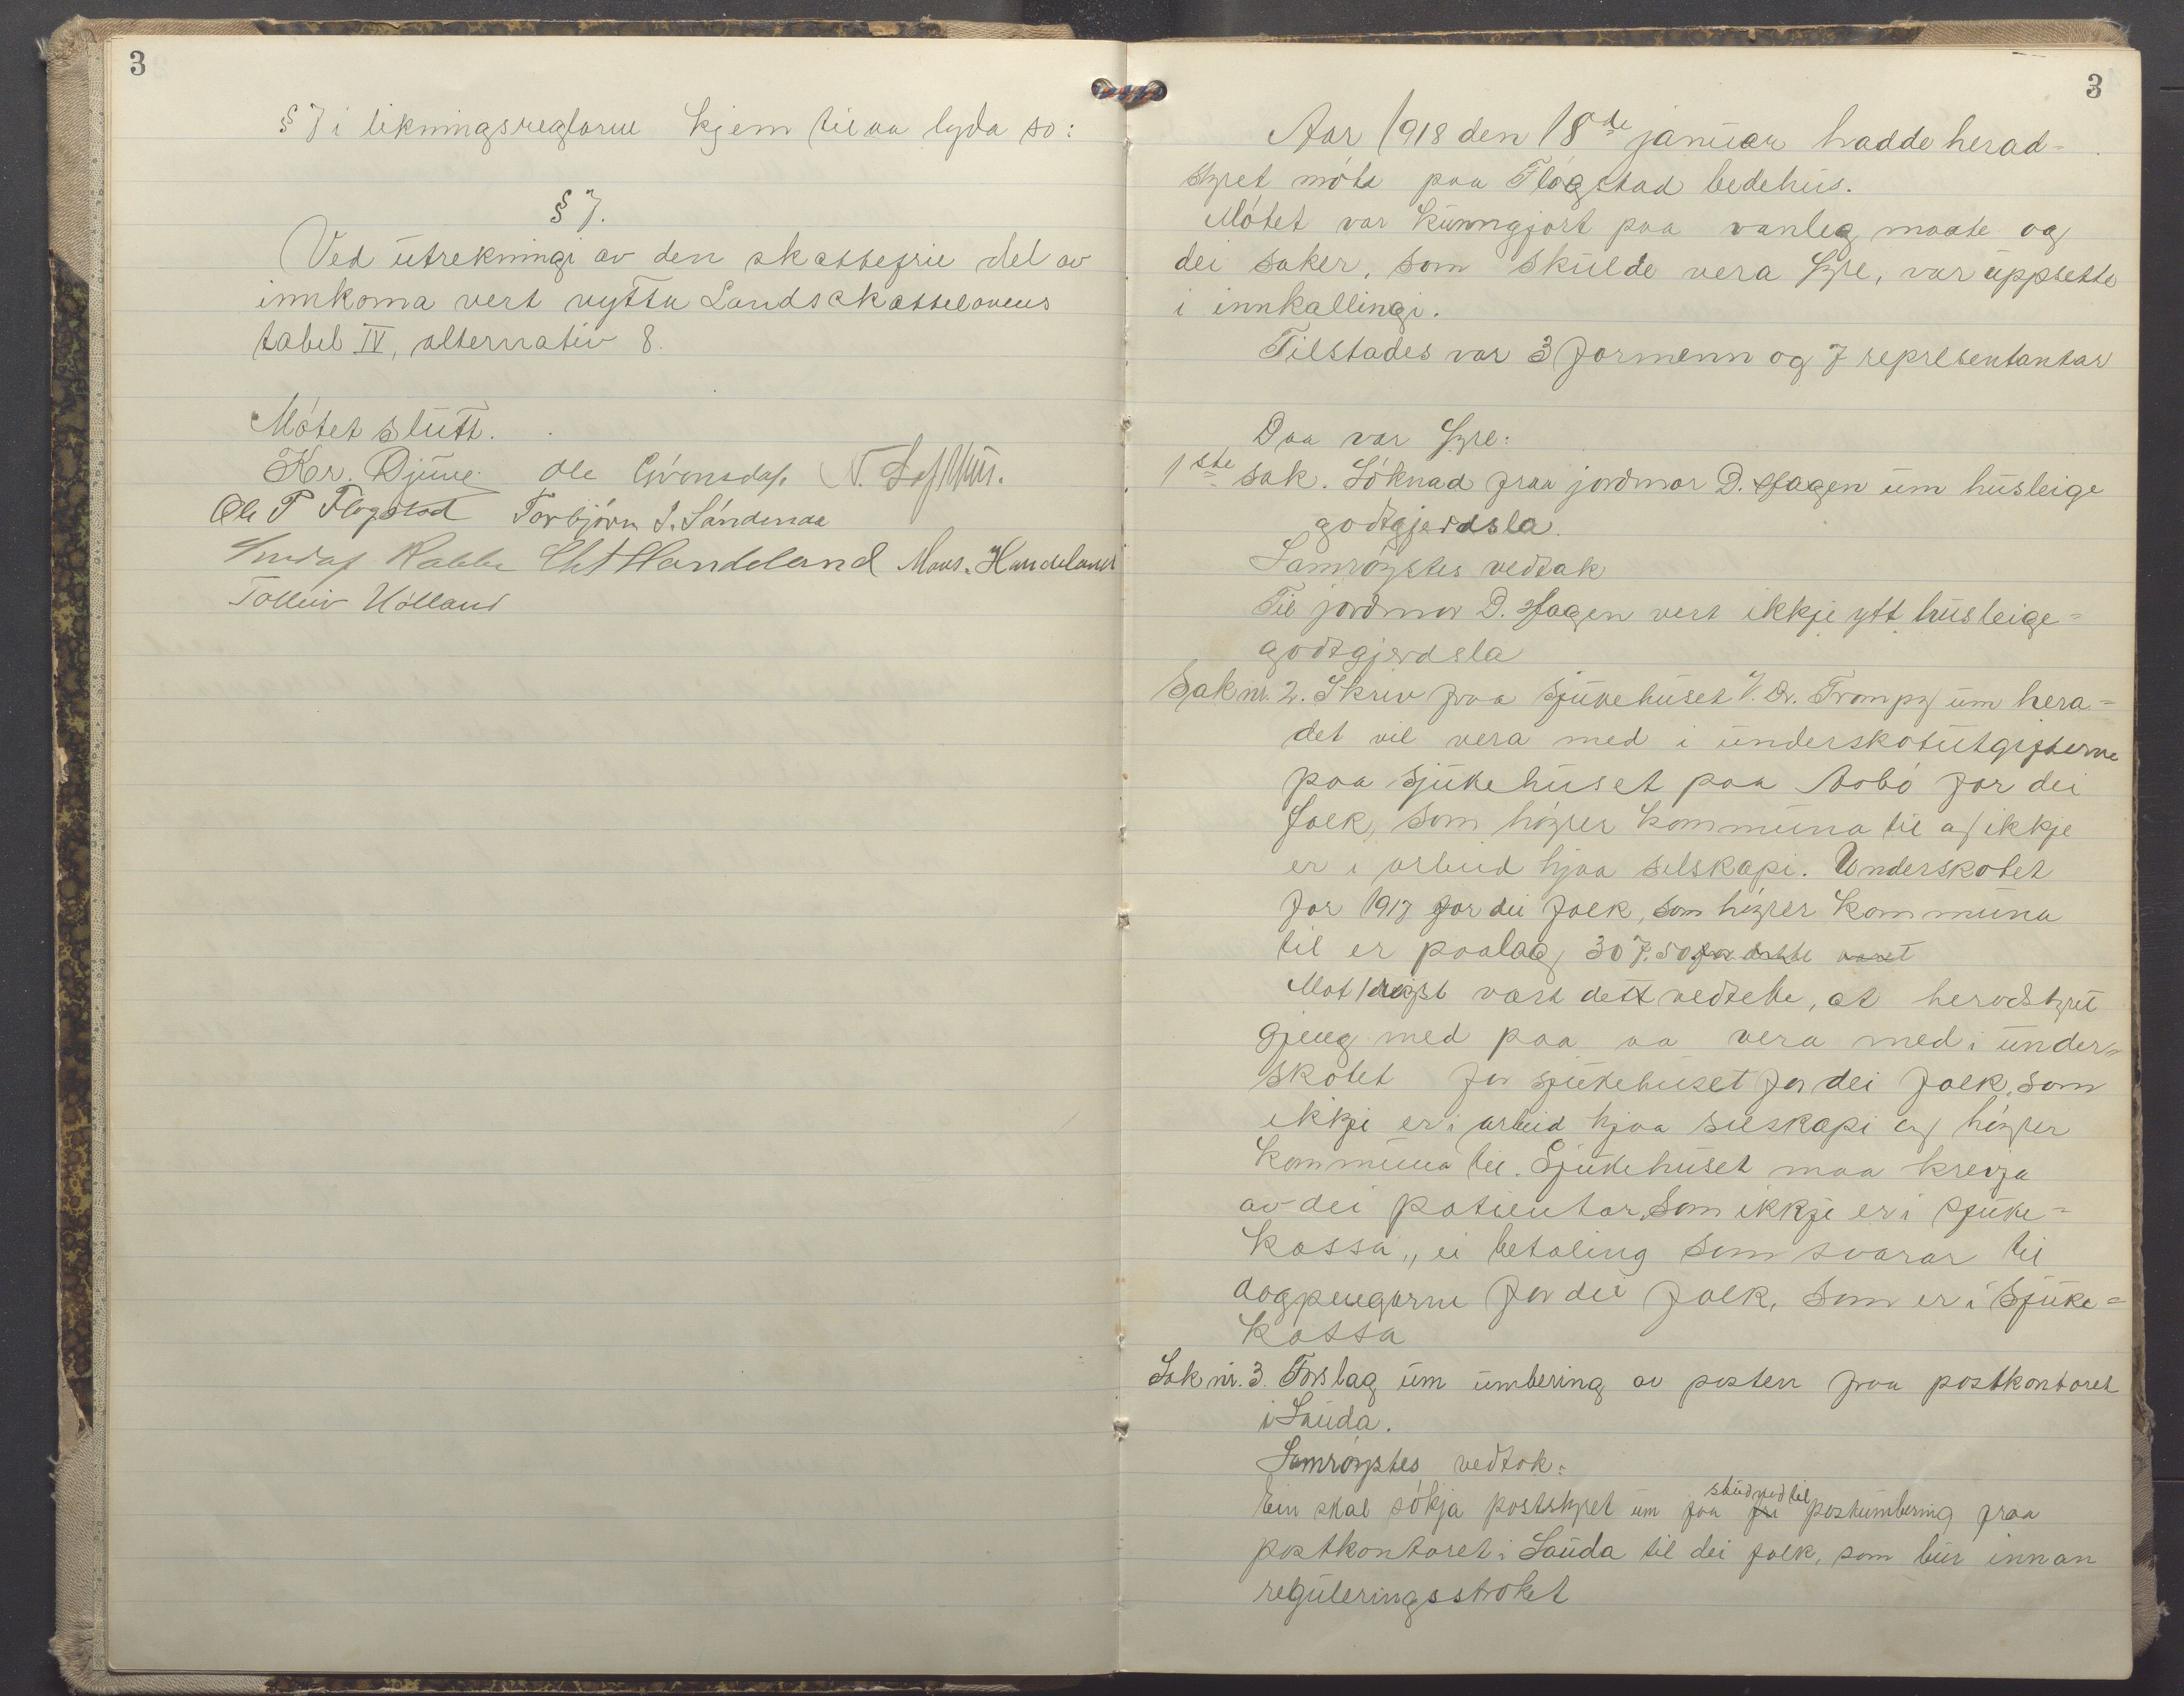 3
§ 7 i likningsreglarne kjem til aa lyda so:
§ 7.
Ved utrekningi av den skattefrie del av
innkoma vert nytta Landsskattelovens
tabel IV, alternativ 8.
Mótet slutt.
Kr. Djuve Ole N. Lofthus.
Ole T Flogstad Torbjórn S. Sándenaa
Rabbe Handeland Mons. Handeland
Tolleiv Hólland
3
Aar 1918 den 18de januar hadde herad-
styret móte paa Flógstad bedehus.
Mótet var kunngjort paa vanleg maate og
dei saker, som skulde vera fyre, var uppsette
i innkallingi.
Tilstades var 3 formenn og 7 representantar
Daa var fyre:
1ste sak. Sóknad fraa jordmor D. Hagen um husleige
godtgjerdsla.
Samróystes vedtak
Til jordmor D. Hagen vert ikkje ytt husleige-
godtgjerdsla
Sak nr. 2. Skriv fraa sjukehuset v. Dr. Trompy um hera-
det vil vera med i underskotutgifterne
paa sjukehuset paa Aabó for dei
folk, som hóyrer kommuna til og ikkje
er i arbeid hjaa selskapi. Underskotet
for 1917 for dei folk, som hóyrer kommuna
til er paalag 307.50 for dette aaret
Mot 1 róyst vart dett vedteke, at heradstyret
gjeng med paa aa vera med i under-
skotet for sjukehuset for dei folk, som
ikkje er i arbeid hjaa selskapi og hóyrer
kommuna til. Sjukehuset maa krevja
av dei patientar, som ikkje er i sjuke-
kassa, ei betaling som svarar til
dagpengarne for dei folk, som er i sjuke-
kassa
Sak nr. 3. Forslag um umbering av posten fraa postkontoret
i Sauda.
Samróystes vedtok:
studnad til
Ein skal sókja poststyret um faa fri postumbering fraa
postkontoret i Sauda til dei folk, som bur innan
reguleringsstroket